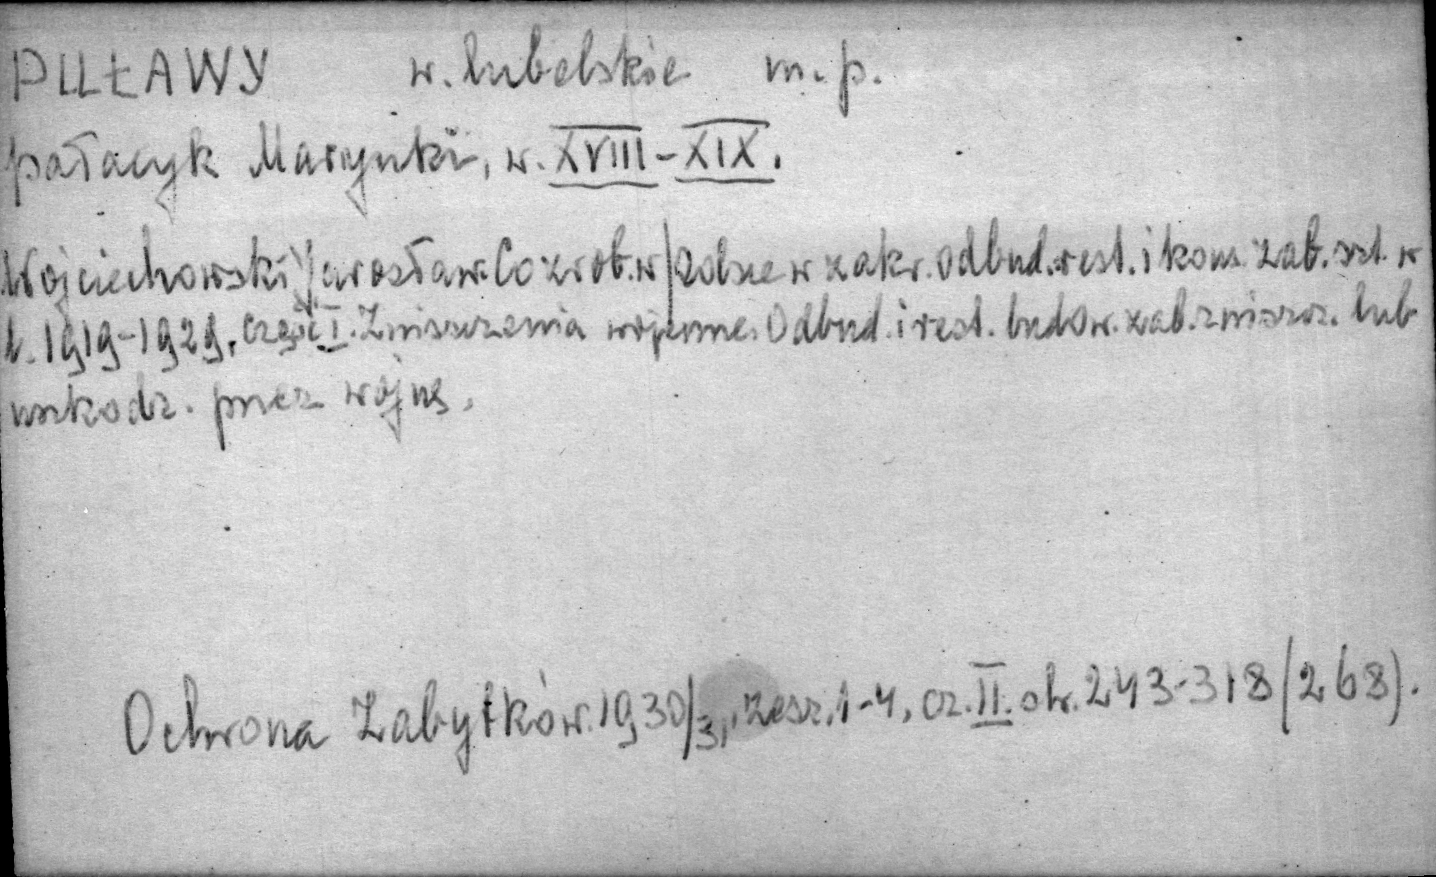 PUŁAWY w. lubelskie m.p.
pałacyk Marynki, w. XVIII-XIX.
Wojciechowski Jarosław: Co zrob. w Polsce w zakr. odbud. rest. i kons. zab. szt. w
l. 1919-1929, część I. Zniszczenia wojenne. Odbud. i rest. budow. zab. zniszcz. lub
uszkodz. przez wojnę.
Ochrona Zabytków. 1930/3, zesz. 1-4, cz. II. str. 243-318 (268).